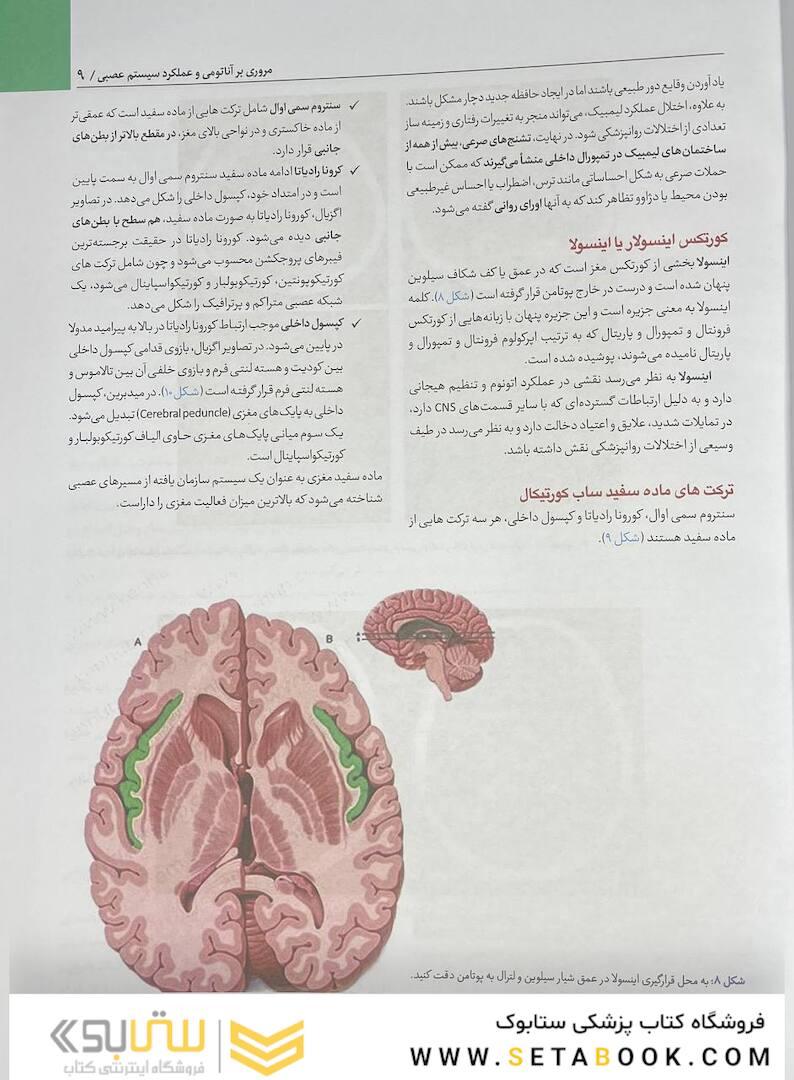 مروری بر آناتومی و عملکرد سیستم عصبی / ۹
یاد آوردن وقایع دور طبیعی باشند اما در ایجاد حافظه جدید دچار مشکل باشند.
به علاوه، اختلال عملکرد لیمبیک، می‌تواند منجر به تغییرات رفتاری و زمینه ساز
تعدادی از اختلالات روانپزشکی شود. در نهایت، تشنج‌های صرعی، بیش از همه از
ساختمان‌های لیمبیک در تمپورال داخلی منشأ می‌گیرند که ممکن است با
حملات صرعی به شکل احساساتی مانند ترس، اضطراب یا احساس غیرطبیعی
بودن محیط یا دژاوو تظاهر کند که به آنها اورای روانی گفته می‌شود.
کورتکس اینسولار یا اینسولا
اینسولا بخشی از کورتکس مغز است که در عمق یا کف شکاف سیلوین
پنهان شده است و درست در خارج پوتامن قرار گرفته است (شکل ۸). کلمه
اینسولا به معنی جزیره است و این جزیره پنهان با زبانه‌هایی از کورتکس
فرونتال و تمپورال و پاریتال که به ترتیب اپرکولوم فرونتال و تمپورال و
پاریتال نامیده می‌شوند، پوشیده شده است.
اینسولا به نظر می‌رسد نقشی در عملکرد اتونوم و تنظیم هیجانی
دارد و به دلیل ارتباطات گسترده‌ای که با سایر قسمت‌های CNS دارد،
در تمایلات شدید، علایق و اعتیاد دخالت دارد و به نظر می‌رسد در طیف
وسیعی از اختلالات روانپزشکی نقش داشته باشد.
ترکت های ماده سفید ساب کورتیکال
سنتروم سمی اوال، کورونا رادیاتا و کپسول داخلی، هر سه ترکت هایی از
ماده سفید هستند (شکل ۹).
✓ سنتروم سمی اوال شامل ترکت هایی از ماده سفید است که عمقی‌تر
از ماده خاکستری و در نواحی بالای مغز، در مقطع بالاتر از بطن‌های
جانبی قرار دارد.
✓ کرونا رادیاتا ادامه ماده سفید سنتروم سمی اوال به سمت پایین
است و در امتداد خود، کپسول داخلی را شکل می‌دهد. در تصاویر
اگزیال، کورونا رادیاتا به صورت ماده سفید، هم سطح با بطن‌های
جانبی دیده می‌شود. کورونا رادیاتا در حقیقت برجسته‌ترین
فیبرهای پروجکشن محسوب می‌شود و چون شامل ترکت های
کورتیکوپونتین، کورتیکوبولبار و کورتیکواسپاینال می‌شود، یک
شبکه عصبی متراکم و پرترافیک را شکل می‌دهد.
✓ کپسول داخلی موجب ارتباط کورونا رادیاتا در بالا به پیرامید مدولا
در پایین می‌شود. در تصاویر اگزیال، بازوی قدامی کپسول داخلی
بین کودیت و هسته لنتی فرم و بازوی خلفی آن بین تالاموس و
هسته لنتی فرم قرار گرفته است (شکل ۱۰). در میدبرین، کپسول
داخلی به پایک‌های مغزی (Cerebral peduncle) تبدیل می‌شود.
یک سوم میانی پایک‌های مغزی حاوی الیاف کورتیکوبولبار و
کورتیکواسپاینال است.
ماده سفید مغزی به عنوان یک سیستم سازمان یافته از مسیرهای عصبی
شناخته می‌شود که بالاترین میزان فعالیت مغزی را داراست.
A
B
شکل ۸: به محل قرارگیری اینسولا در عمق شیار سیلوین و لترال به پوتامن دقت کنید.
فروشگاه کتاب پزشکی ستابوک
WWW.SETABOOK.COM
ستابوک
فروشگاه اینترنتی کتاب